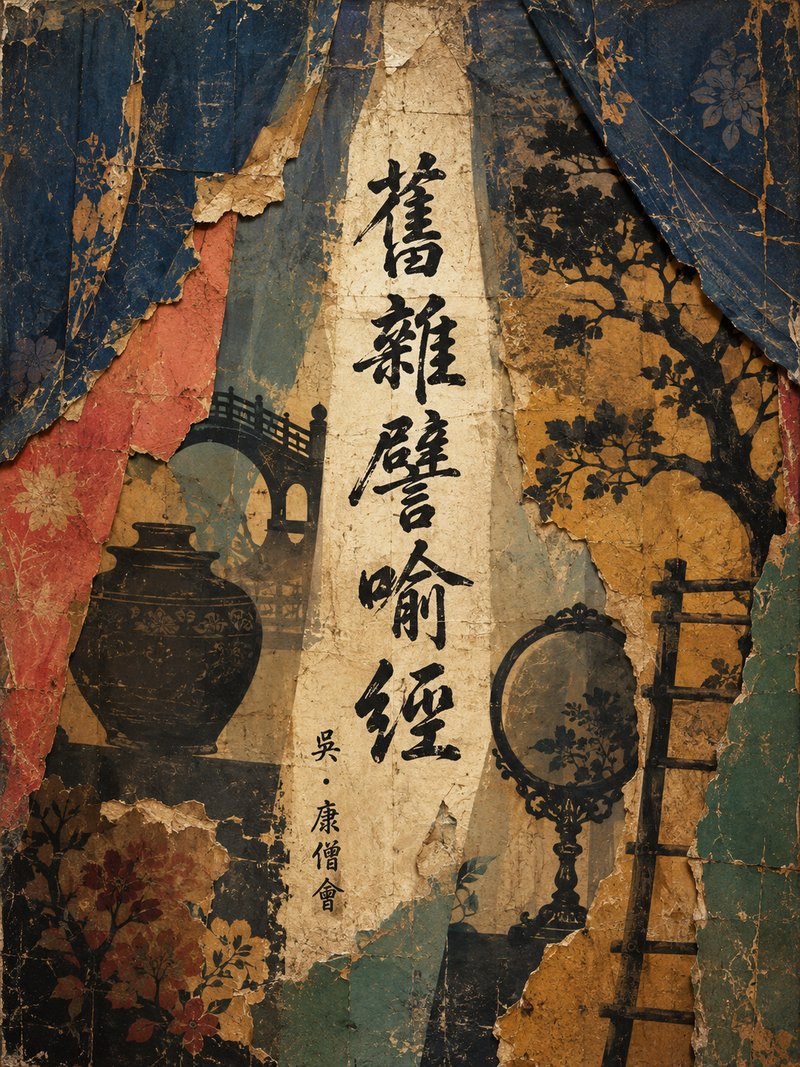 舊雜譬喻經
吳·康僧會